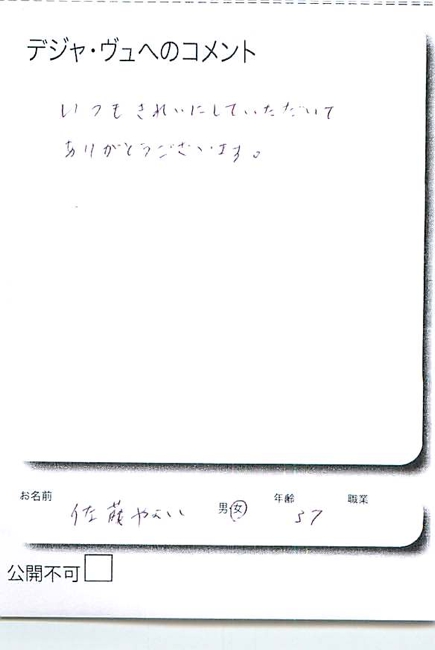 デジャ・ヴュへのコメント
いつもきれいにしていただいて
ありがとうございます。
お名前 佐藤やよい 男 女 年齢 57 職業
公開不可